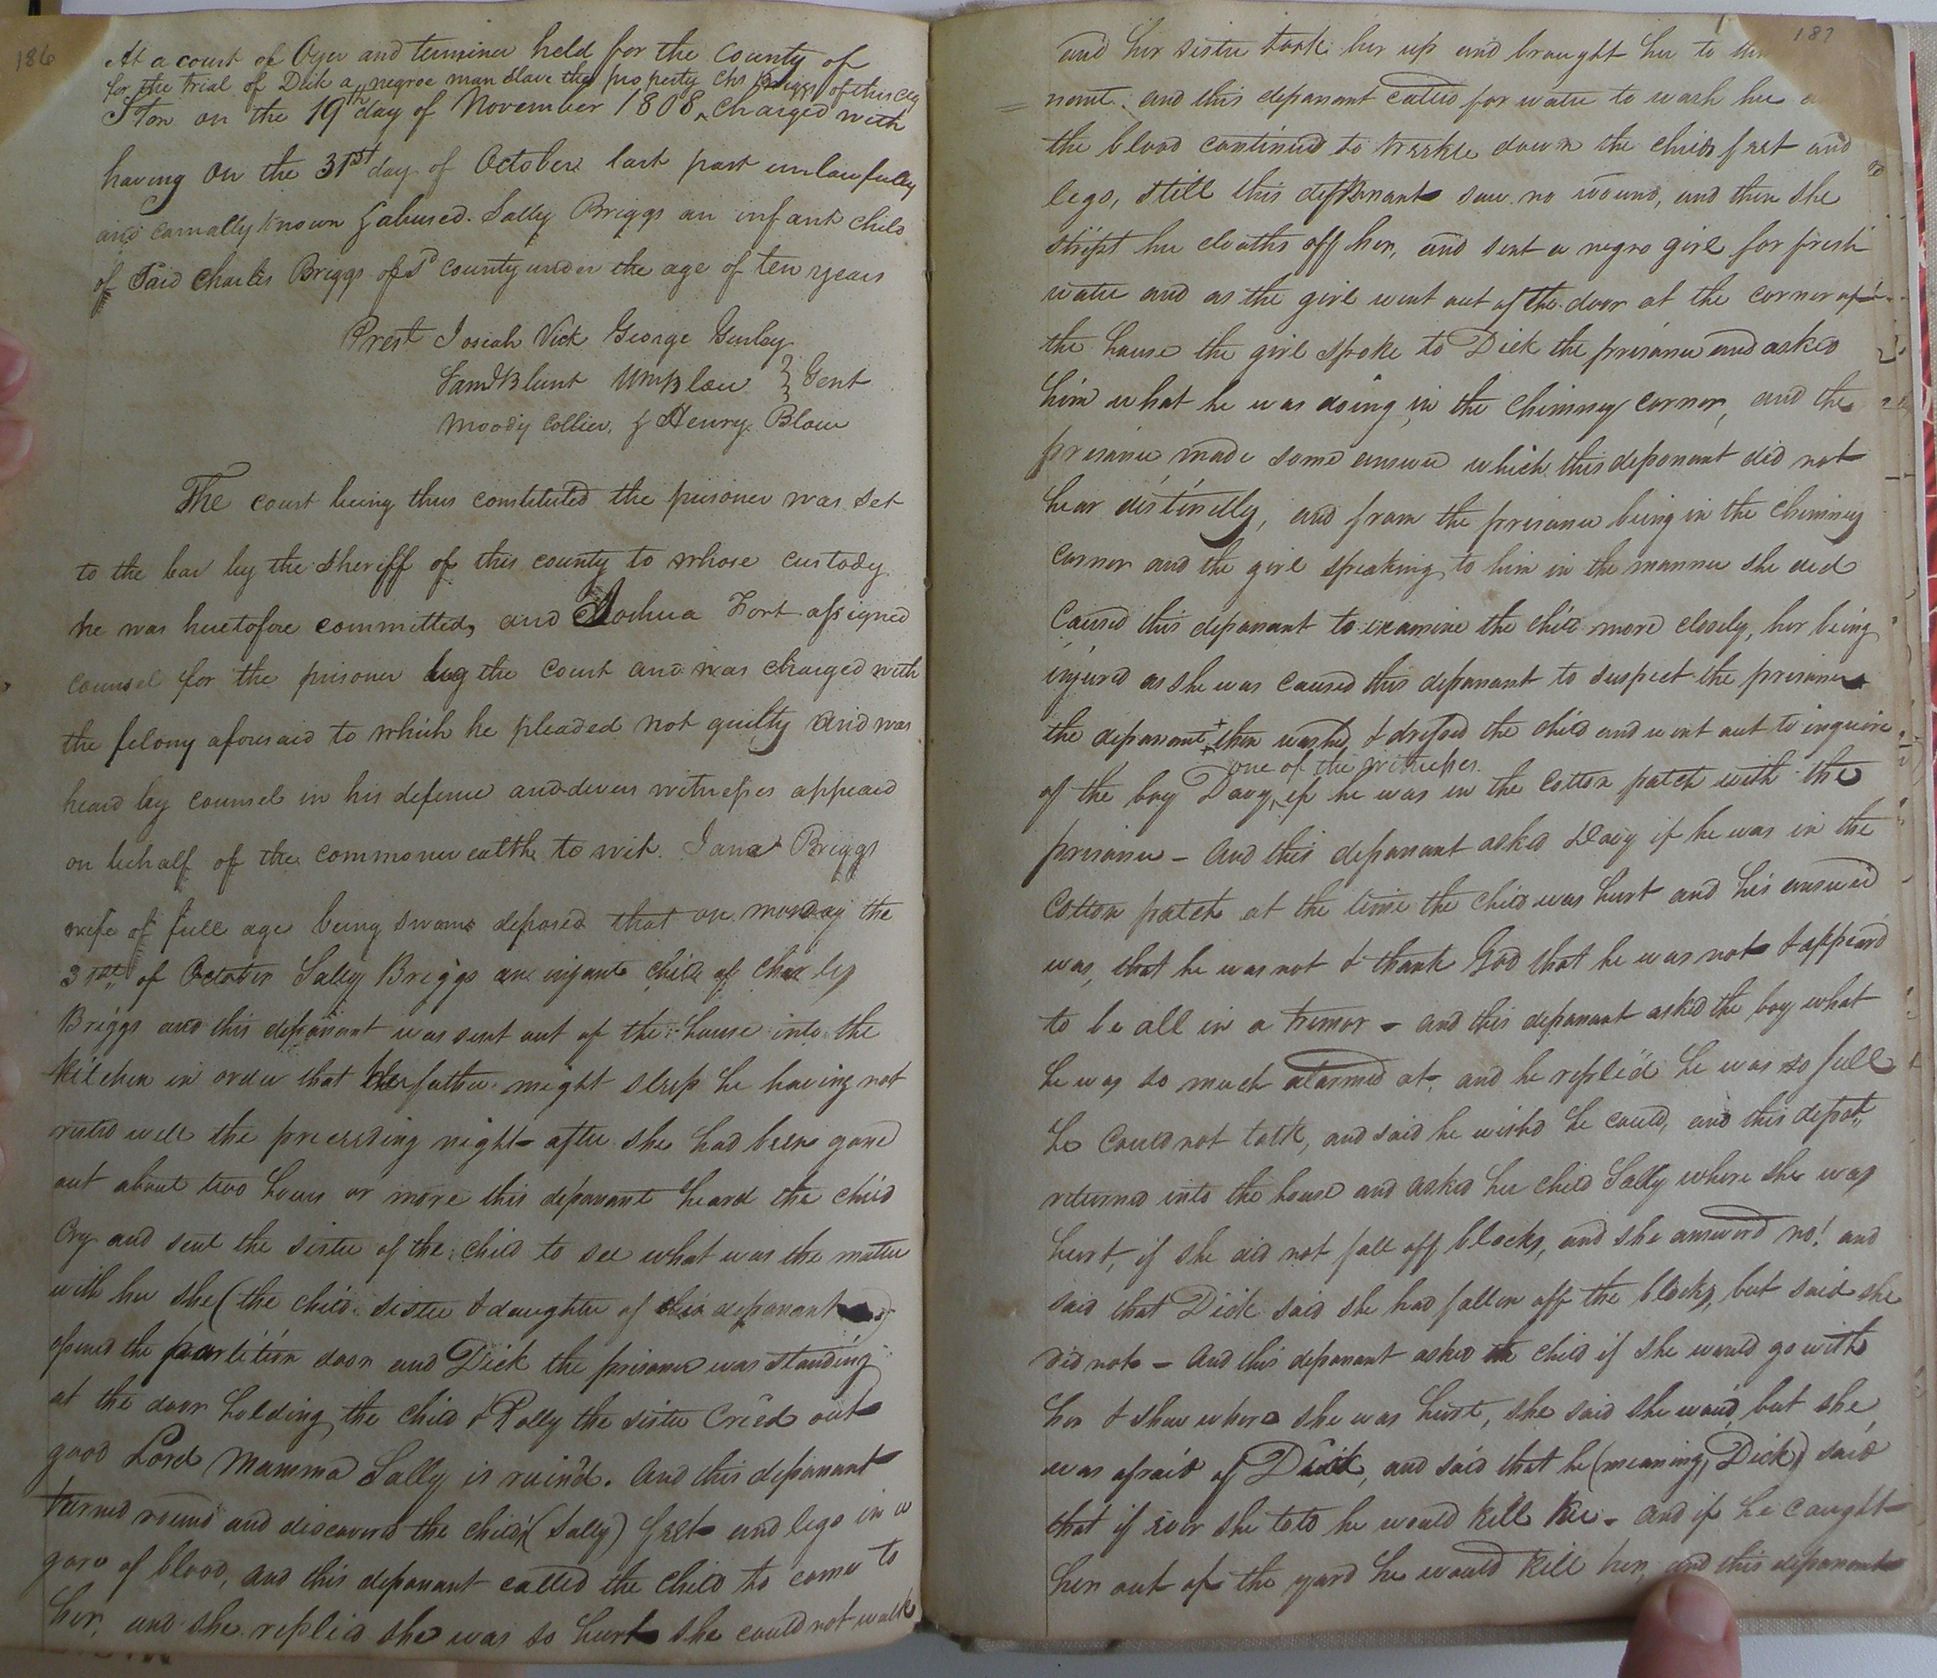 186
At a court of Oyer and terminer held for the County of
for the trial of Dick a negroe man slave the property Chs Briggs of this cty
S'ton on the 19th day of November 1808 ^ charged with
having on the 31st day of October last past unlawfully
and carnally known & abused Sally Briggs an infant child
of said Charles Briggs of sd county under the age of ten years
Prest Josiah Vick George Gurley
Saml Blunt Wm Blow } Gent
Moody Collier, & Henry Blow
The court being thus constituted the prisoner was set
to the bar by the sheriff of this county to whose custody
he was heretofore committed, and Joshua Fort assigned
counsel for the prisoner by the court and was charged with
the felony aforesaid to which he pleaded not guilty and was
heard by counsel in his defense and divers witnesses appeard
on behalf of the commonwealth to wit. Jana Briggs
wife of full age being sworne deposed that on monday the
31st of October Sally Briggs an infant child of Charles
Briggs and this deponant was sent out of the house into the
kitchen in order that her father might sleep he having not
rested well the preceeding night after she had been gone
out about two hours or more this deponant heard the child
Cry and sent the sister of the child to see what was the matter
with her she (the child sister & daughter of this deponant)
opened the partition door and Dick the prisoner was standing
at the door holding the child & Polly the sister Cried out
good Lord Mamma Sally is ruin'd. And this deponant
turned round and discovered the child (Sally) feet and legs in a
gore of blood, and this deponant called the child to come to
her, and she replied she was so hurt she could not walk
187
and her sister took her up and brought her to
and this deponant called for water to wash her
the blood continued to trickle down the childs feet and
legs, still this deponant saw no wound, and then she
stript her cloaths off her, and sent a negro girl for fresh
water and as the girl went out of the door at the corner of
the house the girl spoke to Dick the prisoner and asked
him what he was doing in the chimney corner, and the
prisoner made some answer which this deponant did not
hear distinctly, and from the prisoner being in the chimney
corner and the girl speaking to him in the manner she did
Caused this deponant to examine the child more closely, her being
injured as she was caused this deponant to suspect the prisoner
the deponant then washed & dressed the child and went out to inquire
one of the witnesses
of the boy Davy ^ if he was in the cotton patch with the
prisoner - And this deponant asked Davy if he was in the
Cotton patch at the time the child was hurt and his answer
was, that he was not & thank God that he was not & appeard
to be all in a tremor - and this deponant asked the boy what
he was so much alarmed at and he replied he was so full
he could not talk, and said he wishd he could, and this depot
returned into the house and asked her child Sally where she was
hurt, if she did not fall off blocks, and she answerd no! and
said that Dick said she had fallen off the blocks, but said she
did not - And this deponant asked the child if she would go with
her & shew where she was hurt, she said she would, but she
was afraid of Dick, and said that he (meaning Dick) said
that if ever she told he would kill her - and if he caught
her out of the yard he would kill her, and this deponant